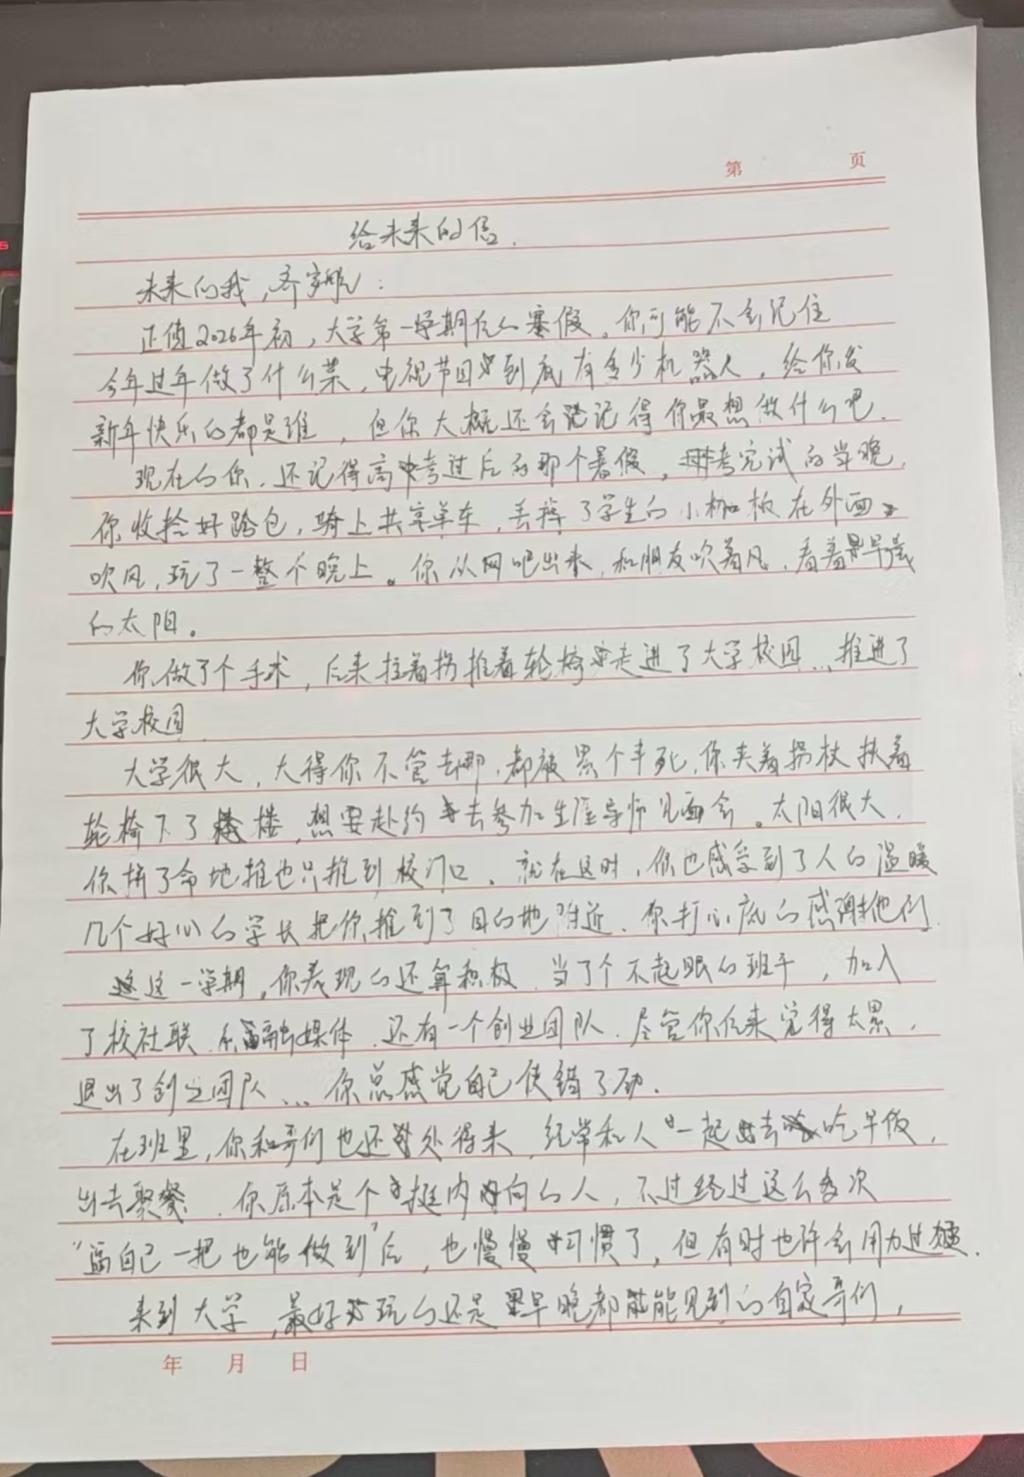 第 页
给未来的信.
未来的我，齐
正值2026年初，大学第一学期后的寒假。你可能不会记住
今年过年做了什么菜，电视节目到底有多少机器人，给你发
新年快乐的都是谁，但你大概还会记得你最想做什么吧.
现在的你.还记得高考过后的那个暑假，考完试的当晚，
你收拾好跨包，骑上共享单车，丢掉了学生的小枷板在外面
吹风，玩了一整个晚上。你从网吧出来，和朋友吹着风，看着早晨
的太阳。
你做了个手术，后来拄着拐推着轮椅走进了大学校园...推进了
大学校园
大学很大，大得你不管去哪，都被累个半死，你夹着拐杖扶着
轮椅下了楼，想要赴约去参加生涯导师见面会。太阳很大，
你拼了命地推也只推到校门口。就在这时，你也感受到了人的温暖
几个好心的学长把你推到了目的地附近.你打心底的感谢他们.
这一学期，你表现的还算积极.当了个不起眼的班干，加入
了校社联.和融媒体.还有一个创业团队.尽管你后来觉得太累，
退出了创业团队...你总感觉自己使错了劲.
在班里，你和哥们也还处得来，经常和人一起去吃早饭，
出去聚餐.你原本是个挺内向的人，不过经过这么多次
“逼自己一把也能做到”后，也慢慢习惯了，但有时也许会用力过猛.
来到大学，最好玩的还是早晚都能见到的自家哥们，
年 月 日